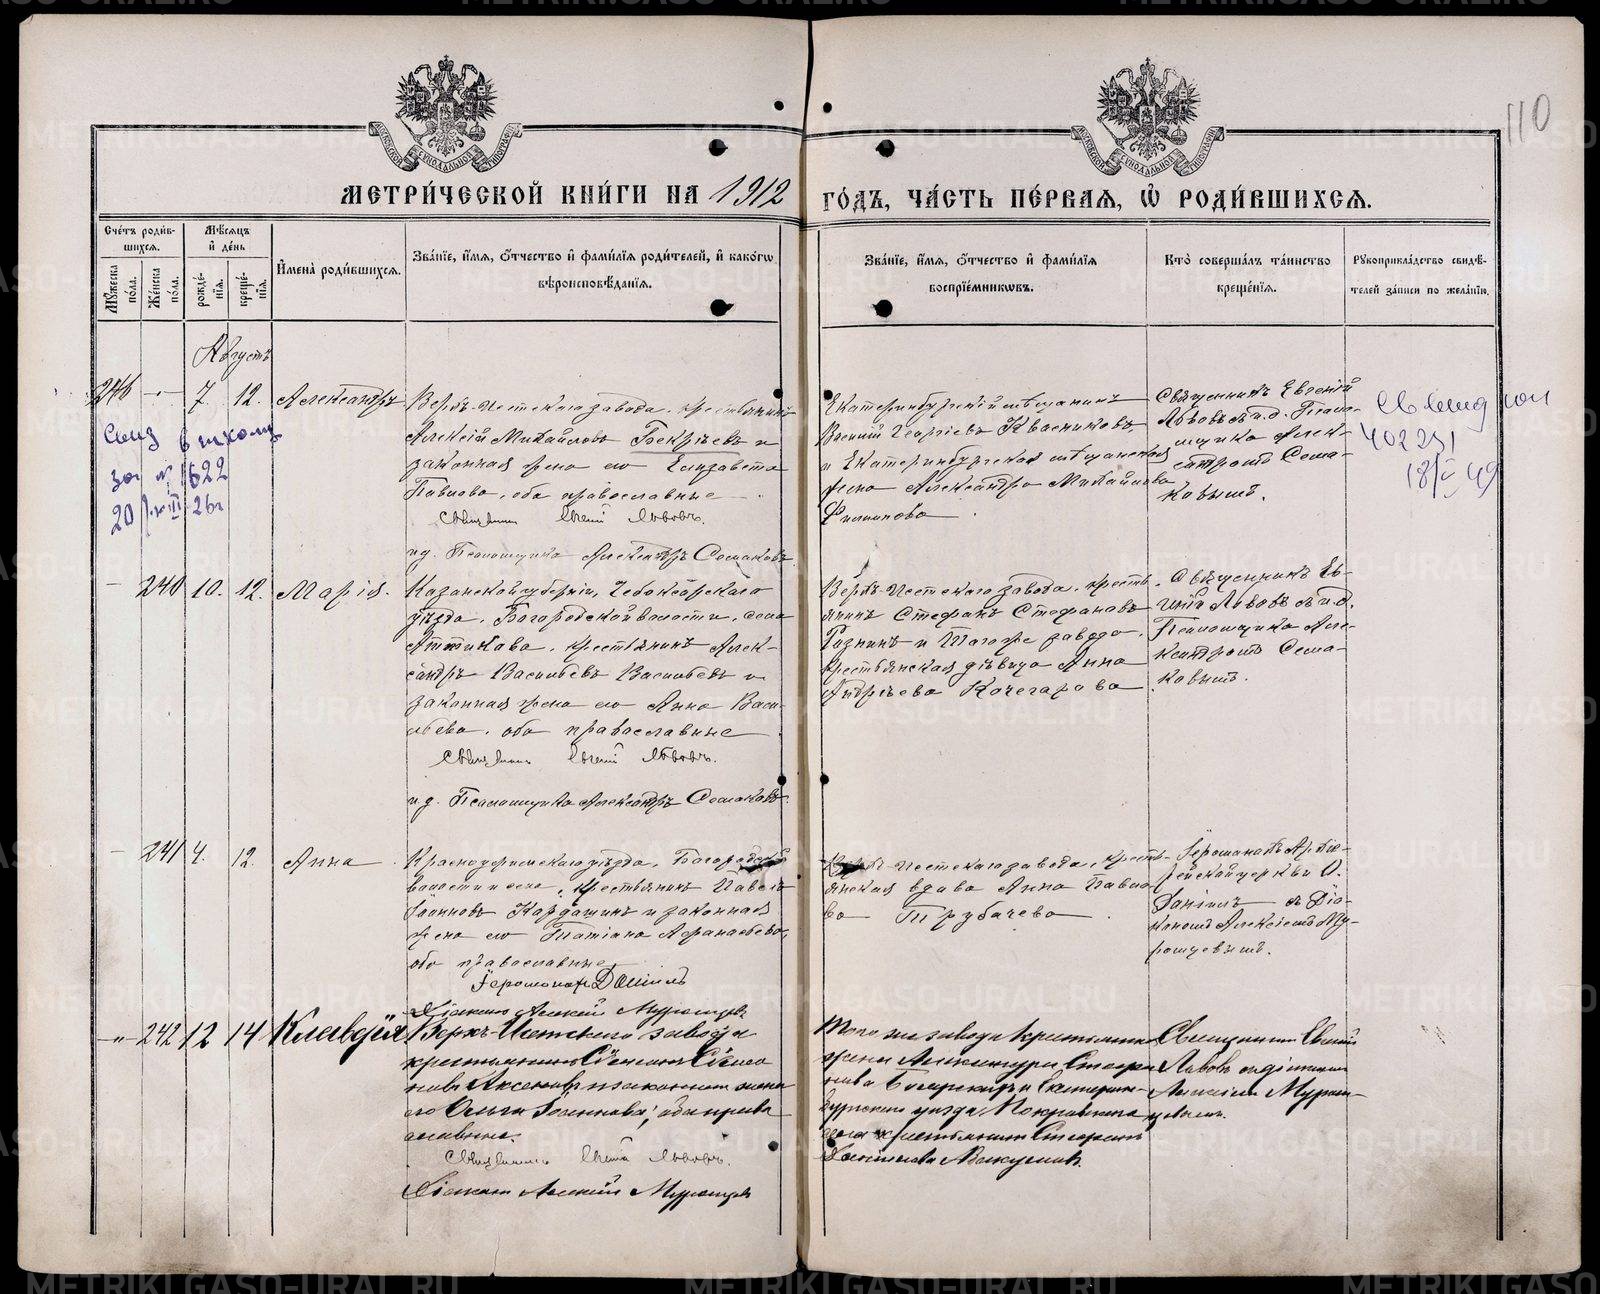 110
МЕТРИЧЕСКОЙ КНИГИ НА 1912 ГОДЪ, ЧАСТЬ ПЕРВАЯ, Ѡ РОДИВШИХСЯ.
Счетъ родившихся.
Мужеска пола.
Женска пола.
Мѣсяцъ и день
рождения.
крещения.
Имена родившихся.
Званіе, имя, отчество и фамилія родителей, и какогѡ
вѣроисповѣданія.
Званіе, имя, отчество и фамилія
воспріемниковъ.
Кто совершалъ таинство
крещенія.
Рукоприкладство свидѣ-
телей записи по желанію.
Августъ
246 — 7 12. Александръ
Верхъ-Исетскаго завода, крестьянинъ
Алексій Михайловъ Бекрѣевъ и
законная жена его Елизавета
Павлова, оба православные
Священникъ Евгеній Львовъ.
и.д. Псаломщика Александръ Сомаковъ
Екатеринбургскій мѣщанинъ
Василій Георгіевъ Квасниковъ,
и Екатеринбургская мѣщанская
жена Александра Михайлова
Филиппова
Священникъ Евгеній
Львовъ съ и.д. Псало-
мщика Алек-
сандромъ Сома-
ковымъ.
за № 622
20 VIII 26г
402291
— 240 10. 12. Марія.
Казанской губерніи, Чебоксарскаго
уѣзда, Богородской волости, села
крестьянинъ Алек-
сандръ Васильевъ Васильевъ и
законная жена его Анна Васи-
льева, оба православные
Священникъ Евгеній Львовъ.
и.д. Псаломщика Александръ Сомаковъ
Верхъ-Исетскаго завода, кресть-
янинъ Стефанъ Стефановъ
и Того же завода,
крестьянская дѣвица Анна
Андреева Кочегарова
Священникъ Ев-
геній Львовъ съ и.д.
Псаломщика Але-
ксандромъ Сома-
ковымъ.
— 241 4. 12. Анна
Красноуфимскаго уѣзда, Богородской
волости и села, крестьянинъ Павелъ
Іоанновъ Кардашинъ и законная
жена его Татіана Афанасьева,
оба православные
Іеромонахъ Даніилъ
Діаконъ Алексій Мурашевъ
Верхъ-Исетскаго завода, кресть-
янская вдова Анна Павло-
ва Трубачева
Іеромонахъ Архіе-
рейской церкви О.
Даніилъ съ Діа-
кономъ Алексіемъ Му-
рашевымъ.
-"- 242 12 14 Клавдія
Верхъ-Исетскаго завода
крестьянинъ Симеонъ Симео-
новъ Аксеновъ и законная жена
его Ольга Іоаннова, оба право-
славные.
Священникъ Евгеній Львовъ.
Діаконъ Алексій Мурашевъ
Того же завода крестьянина
жена Александра Стефа-
нова и Екатерин-
бургскаго уѣзда Покровскаго
села крестьянинъ Стефанъ
Священникъ Евгеній
Львовъ съ діакономъ
Алексіемъ Мураш-
евымъ.
METRIKI.GASO-URAL.RU